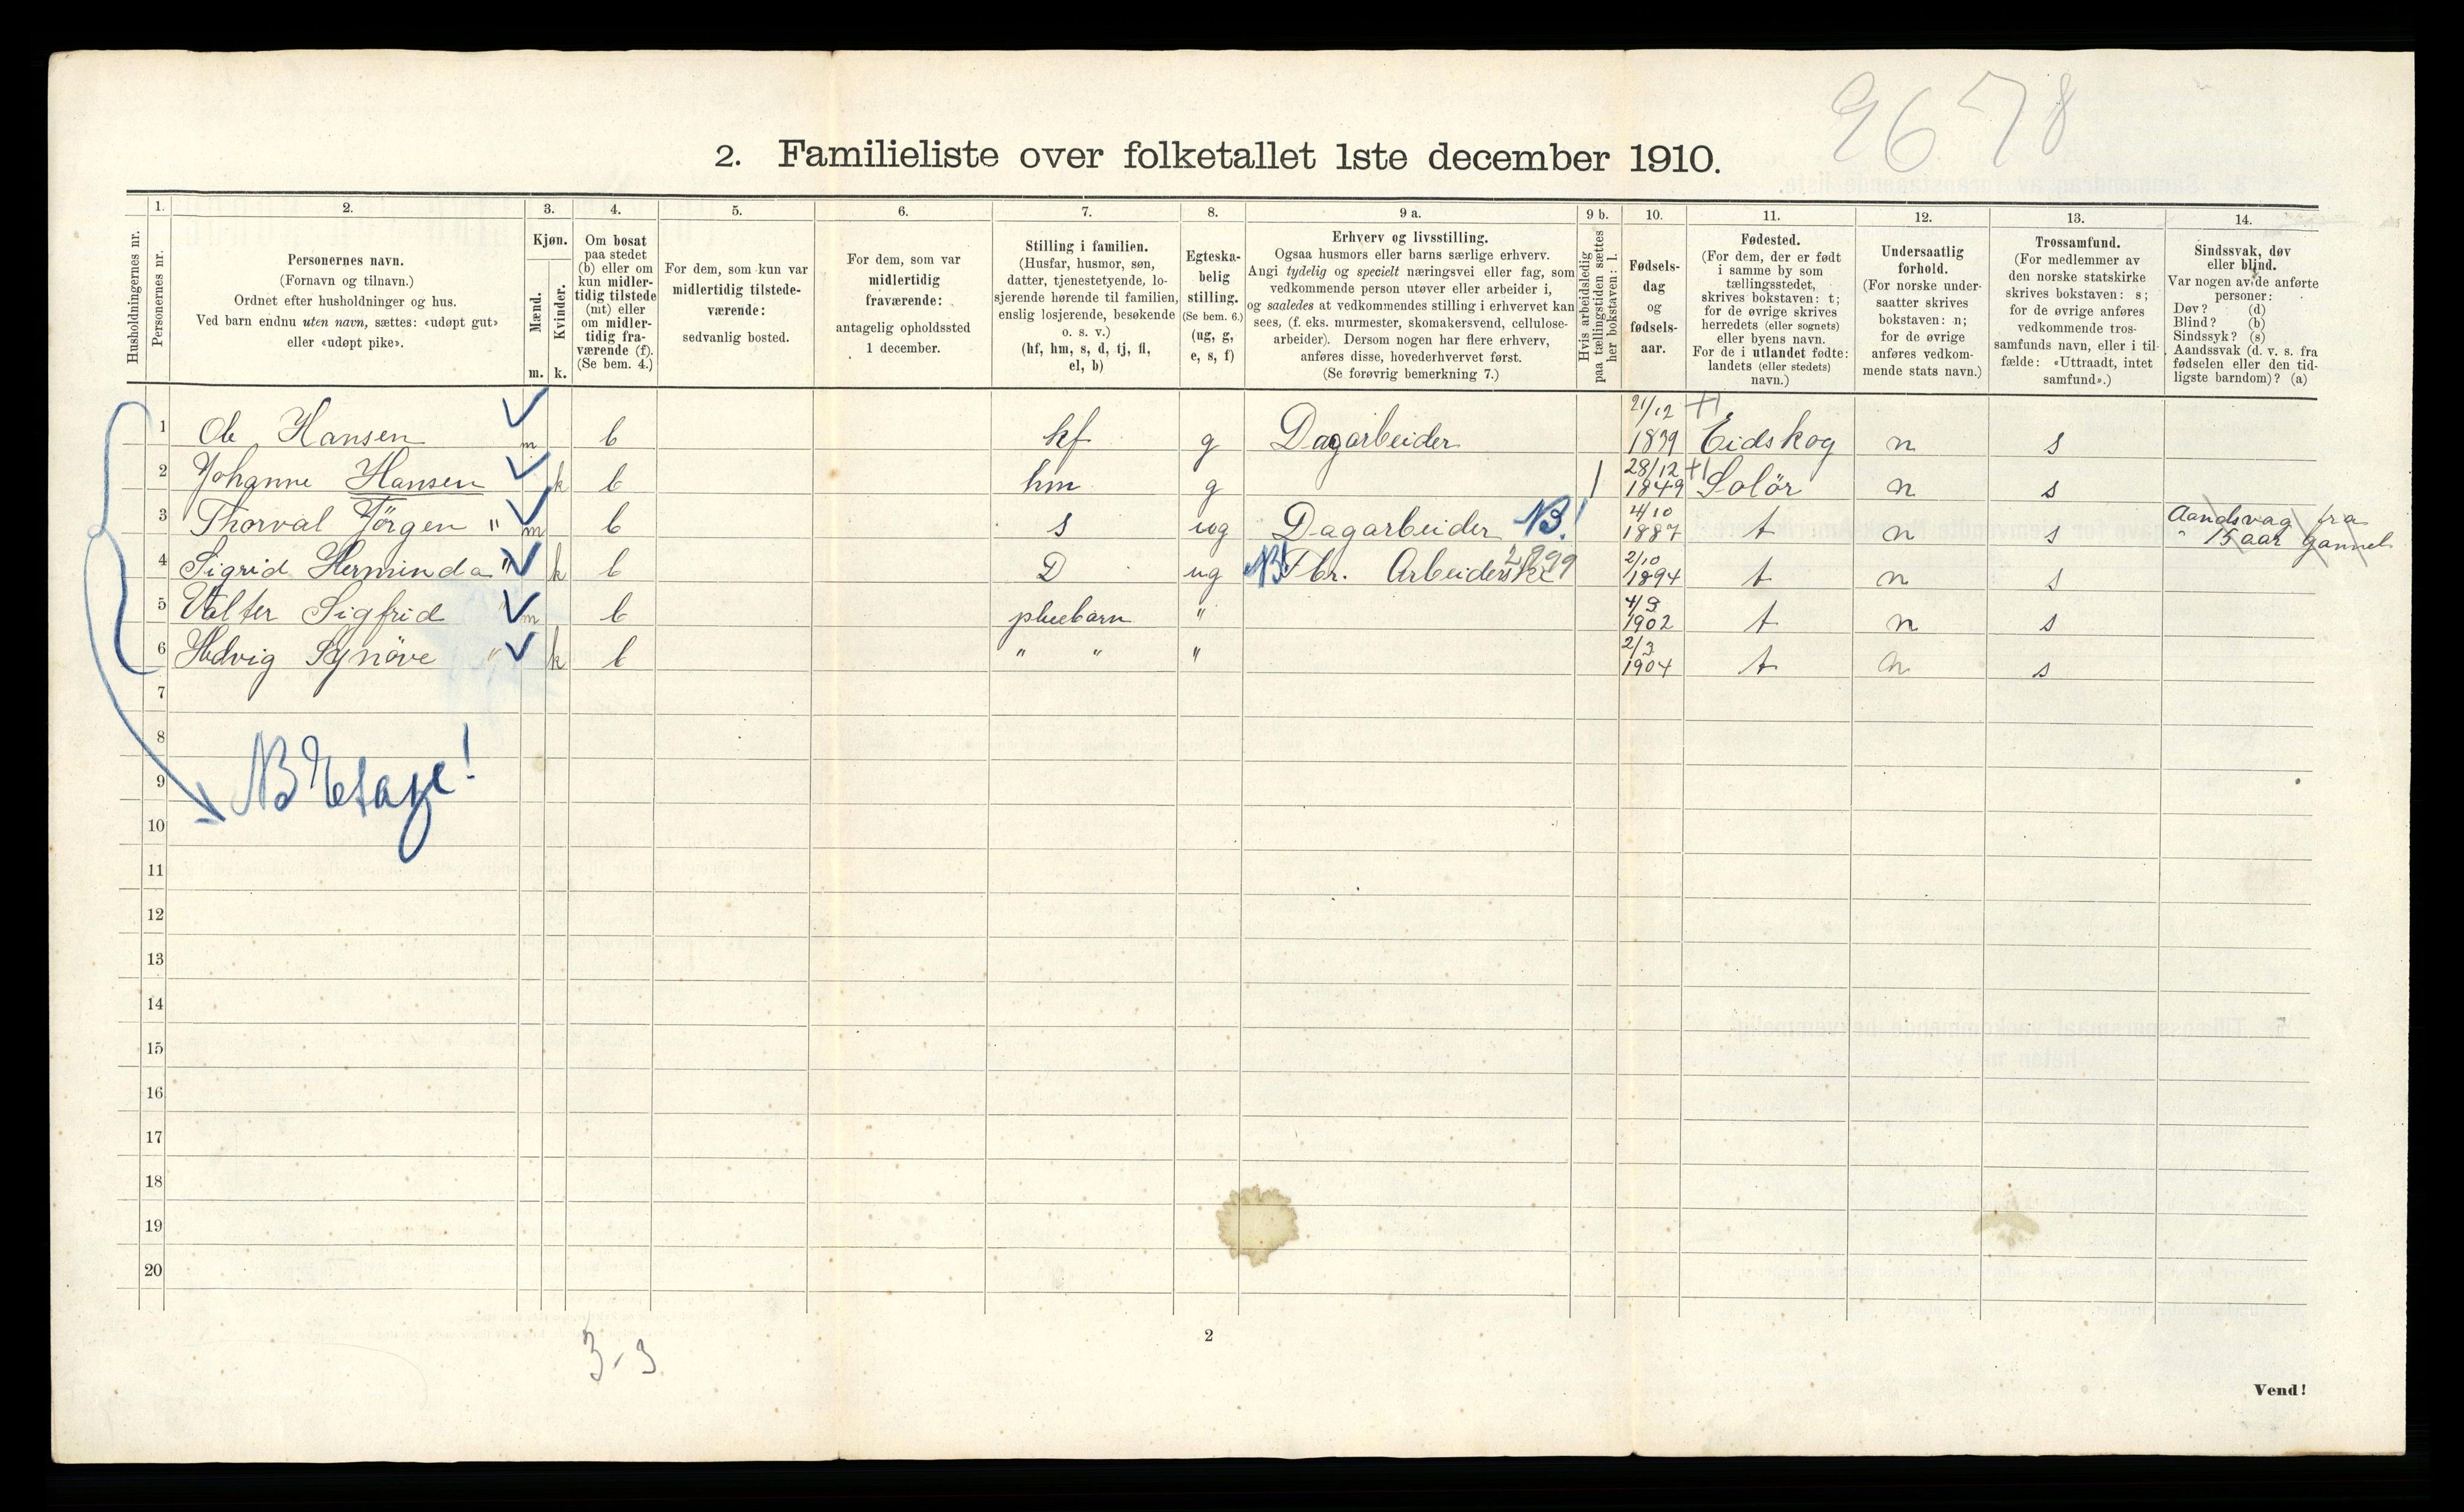 9678
2. Familieliste over folketallet 1ste december 1910.
Husholdningernes nr.
1. Personernes nr.
2. Personernes navn. (Fornavn og tilnavn.) Ordnet efter husholdninger og hus. Ved barn endnu uten navn, sættes: «udøpt gut» eller «udøpt pike».
3. Kjøn. Mænd. m. Kvinder. k.
4. Om bosat paa stedet (b) eller om kun midlertidig tilstede (mt) eller om midlertidig fraværende (f). (Se bem. 4.)
5. For dem, som kun var midlertidig tilstedeværende: sedvanlig bosted.
6. For dem, som var midlertidig fraværende: antagelig opholdssted 1 december.
7. Stilling i familien. (Husfar, husmor, søn, datter, tjenestetyende, losjerende hørende til familien, enslig losjerende, besøkende o. s. v.) (hf, hm, s, d, tj, fl, el, b)
8. Egteskabelig stilling. (Se bem. 6.) (ug, g, e, s, f)
9 a. Erhverv og livsstilling. Ogsaa husmors eller barns særlige erhverv. Angi tydelig og specielt næringsvei eller fag, som vedkommende person utøver eller arbeider i, og saaledes at vedkommendes stilling i erhvervet kan sees, (f. eks. murmester, skomakersvend, cellulose-arbeider). Dersom nogen har flere erhverv, anføres disse, hovederhvervet først. (Se forøvrig bemerkning 7.)
9 b. Hvis arbeidsledig paa tællingstiden sættes her bokstaven: l.
10. Fødselsdag og fødselsaar.
11. Fødested. (For dem, der er født i samme by som tællingsstedet, skrives bokstaven: t; for de øvrige skrives herredets (eller sognets) eller byens navn. For de i utlandet fødte: landets (eller stedets) navn.)
12. Undersaatlig forhold. (For norske undersaatter skrives bokstaven: n; for de øvrige anføres vedkommende stats navn.)
13. Trossamfund. (For medlemmer av den norske statskirke skrives bokstaven: s; for de øvrige anføres vedkommende trossamfunds navn, eller i tilfælde: «Uttraadt, intet samfund».)
14. Sindssvak, døv eller blind. Var nogen av de anførte personer: Døv? (d) Blind? (b) Sindssyk? (s) Aandssvak (d. v. s. fra fødselen eller den tidligste barndom)? (a)
1 Ole Hansen m b hf g Dagarbeider 21/12 1839 Eidskog n s
2 Johanne Hansen k b hm g 28/12 1849 Solör n s
3 Thorval Jörgen " m b s ug Dagarbeider NB! 4/10 1887 t n s Aandsvag fra 15 aar gammel
4 Sigrid Herminda " k b D ug NB! Fbr. Arbeiderske 2899 2/10 1894 t n s
5 Valter Sigfrid " m b pleebarn " 4/9 1902 t n s
6 Hedvig Synöve " k b " " " 2/3 1904 t n s
7
8
9
NB Etage!
10
11
12
13
14
15
16
17
18
19
20
3-3
2
Vend!